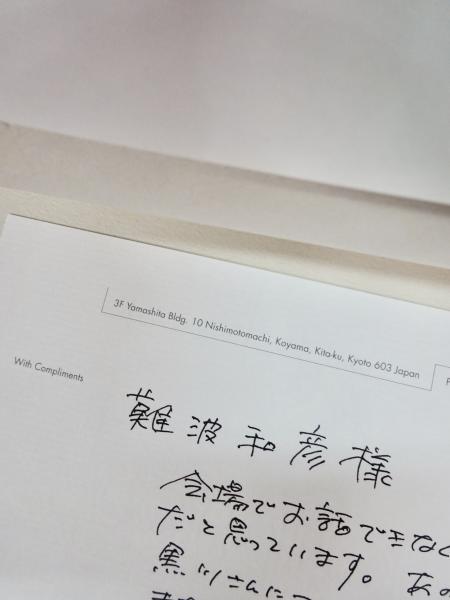 3F Yamashita Bldg. 10 Nishimotomachi, Koyama, Kita-ku, Kyoto 603 Japan
With Compliments
難波和彦様
会場でお話できなく
だと思っています。あの
黒川さんに